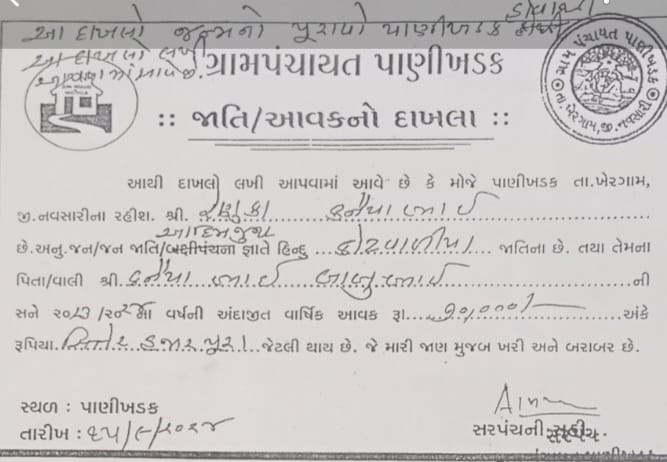 આ દાખલો જન્મનો પુરાવો પાણીખડક હોવાથી
આ દાખલો લખી
આપવામાં આવે છે.
ગ્રામપંચાયત પાણીખડક
ગ્રામ પંચાયત પાણીખડક
તા.ખેરગામ, જી.નવસારી
:: જાતિ/આવકનો દાખલા ::
આથી દાખલો લખી આપવામાં આવે છે કે મોજે પાણીખડક તા.ખેરગામ,
જી.નવસારીના રહીશ. શ્રી. રેણુકા કનૈયાભાઈ
આદિમજુથ
છે.અનુ.જન/જન જાતિ/બક્ષીપંચના જ્ઞાતે હિન્દુ કોટવાળીયા જાતિના છે. તથા તેમના
પિતા/વાલી શ્રી. કનૈયાભાઈ બાબુભાઈ ની
સને ૨૦૨૩/૨૦૨૪માં વર્ષની અંદાજીત વાર્ષિક આવક રૂા. ૭૦,૦૦૦/- અંકે
રૂપિયા. સિત્તેર હજાર પુરા જેટલી થાય છે. જે મારી જાણ મુજબ ખરી અને બરાબર છે.
સ્થળ : પાણીખડક
તારીખ : ૨૫/૯/૨૦૨૪
સરપંચની સહી.
સરપંચ